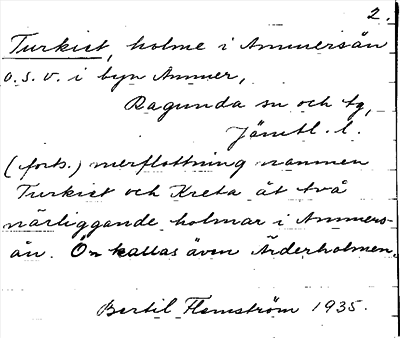 2.
Turkist, holme i Ammersån
o.s.v. i byn Ammer,
Ragunda sn och tg,
Jämtl. l.
(forts.) merflottning namnen
Turkiet och Kreta åt två
närliggande holmar i Ammers-
ån. Ön kallas även Ärderholmen.
Bertil Flemström 1935.